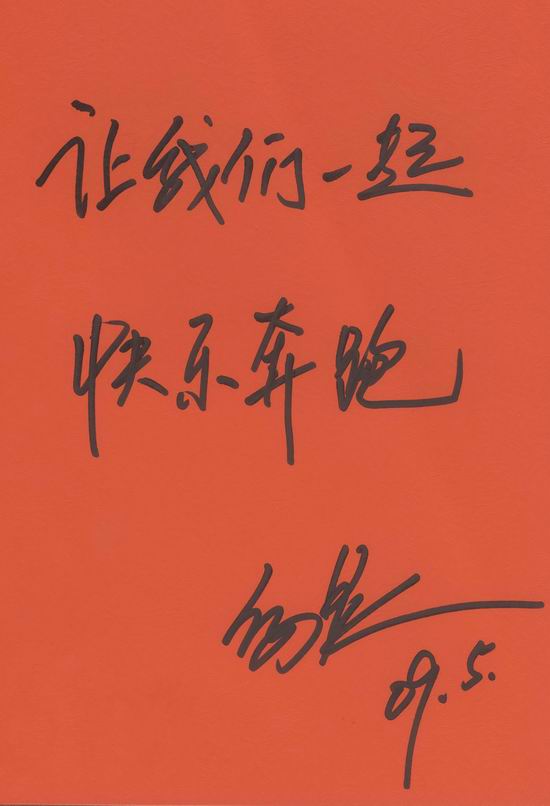 让我们一起
快乐奔跑
09.5.